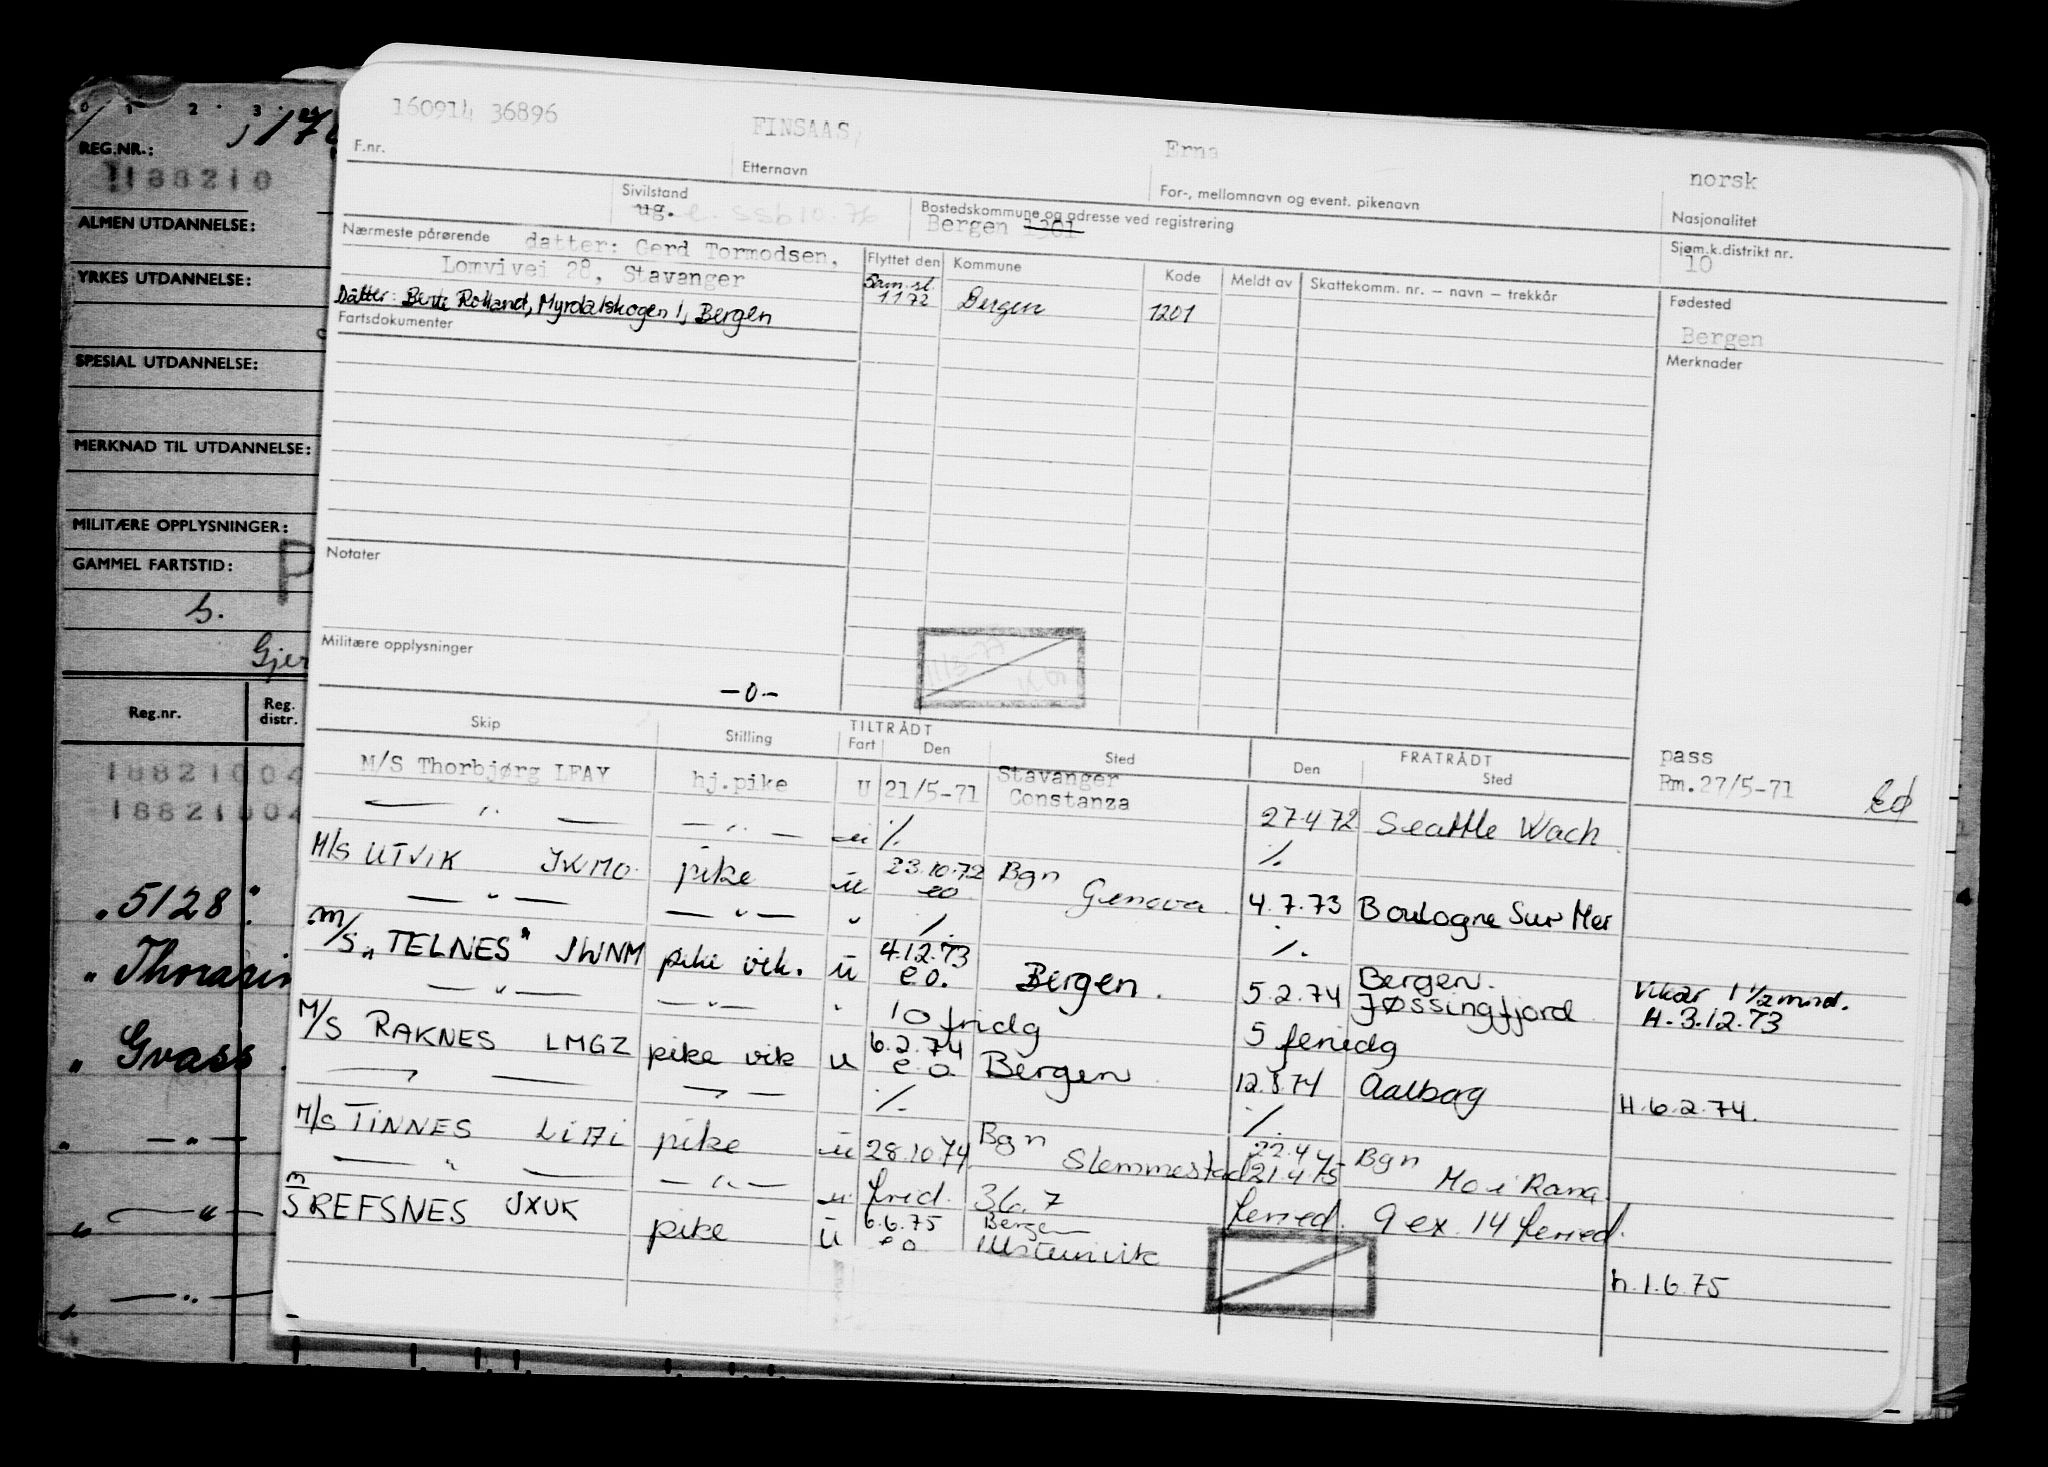 0 1 2 3
REG.NR.:
188210
ALMEN UTDANNELSE:
YRKES UTDANNELSE:
SPESIAL UTDANNELSE:
MERKNAD TIL UTDANNELSE:
MILITÆRE OPPLYSNINGER:
GAMMEL FARTSTID:
P
Gjer
Reg.nr. Reg. distr.
18821004
18821004
"5128"
" Thorasin
" Gvass
" — " —
" — " —
" — " —
160914 36896 FINSAAS, Erna norsk
F.nr. Etternavn For-, mellomnavn og event. pikenavn Nasjonalitet
Sivilstand Bostedskommune og adresse ved registrering Sjøm.k.distrikt nr.
ug. e. ssb 10.76 Bergen 1301 10
Nærmeste pårørende datter: Gerd Tormodsen, Flyttet den Kommune Kode Meldt av Skattekomm. nr. – navn – trekkår Fødested
Lomvivei 28, Stavanger Sam.sl.
Datter: Rolland, Myrdalskogen 1, Bergen 1172 Bergen 1201 Bergen
Fartsdokumenter Merknader
Notater
Militære opplysninger
-0-
Skip Stilling TILTRÅDT FRATRÅDT
Fart Den Sted Den Sted pass
M/S Thorbjørg LFAY hj.pike U 21/5-71 Stavanger Constanza Rm.27/5-71
— " — — " — u ⁒ 27.4.72 Seattle Wach
M/S UTVIK JWMO pike u 23.10.72 eo Bgn Genova ⁒
— " — — " — " ⁒ 4.7.73 Boulogne Sur Mer
M/S "TELNES" JWNM pike vik. u 4.12.73 e o. Bergen. ⁒ Bergen.
— " — — " — " 10 fridg 5.2.74 Jøssingfjord Vikar 1 1/2 mnd. H. 3.12.73
M/S RAKNES LMGZ pike vik u 6.2.74 e.o Bergen 5 feridg
— " — — " — ⁒ 12.8.74 Aalborg H. 6.2.74.
M/S TINNES pike u 28.10.74 Bgn Slemmestad ⁒ Bgn
— " — — " — u frid. 36.7 21.4.75 Mo i Rana
M/S REFSNES JXUK pike u 6.6.75 eo Bergen Ulsteinvik feried. 9 ex. 14 feried.
h. 1.6.75